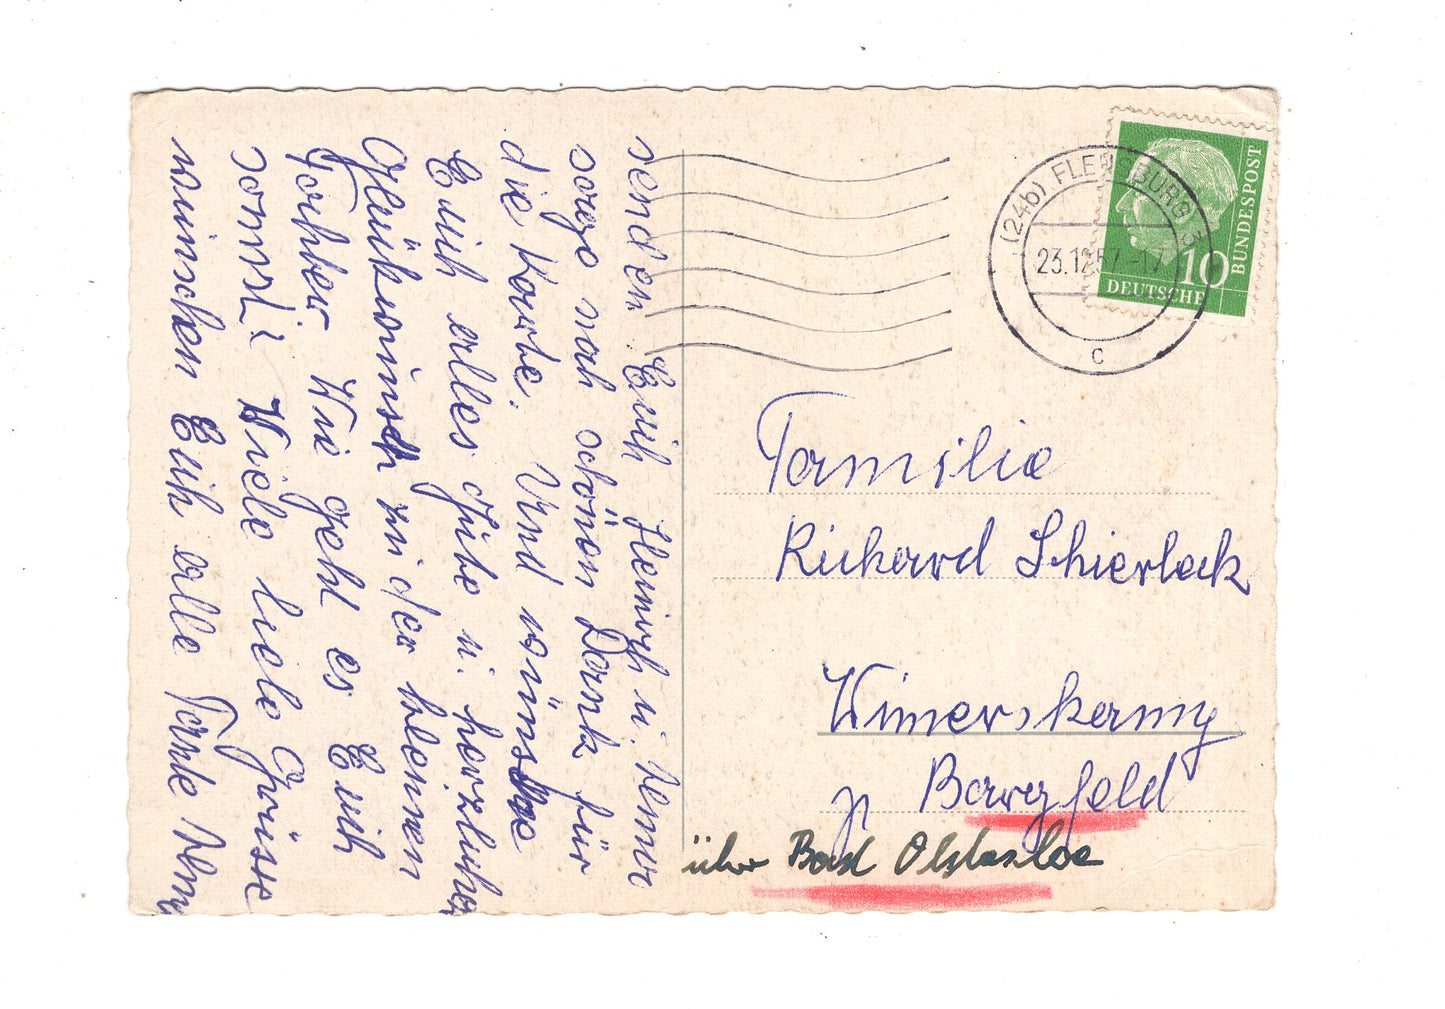 senden Euch Heinrich u. Anni
sage noch schönen Dank für
die Karte. Und wünsche
Euch alles Gute u. herzlichen
Glückwunsch zu der kleinen
Tochter. Wie geht es Euch
sonst. Viele liebe Grüsse
wünschen Euch alle Tante Anni
(24b) FLENSBURG 3
23.12.57.-17
c
10
DEUTSCHE
BUNDESPOST
Familie
Richard Schierleck
Wimerskamp
p Bargfeld
über Bad Oldesloe